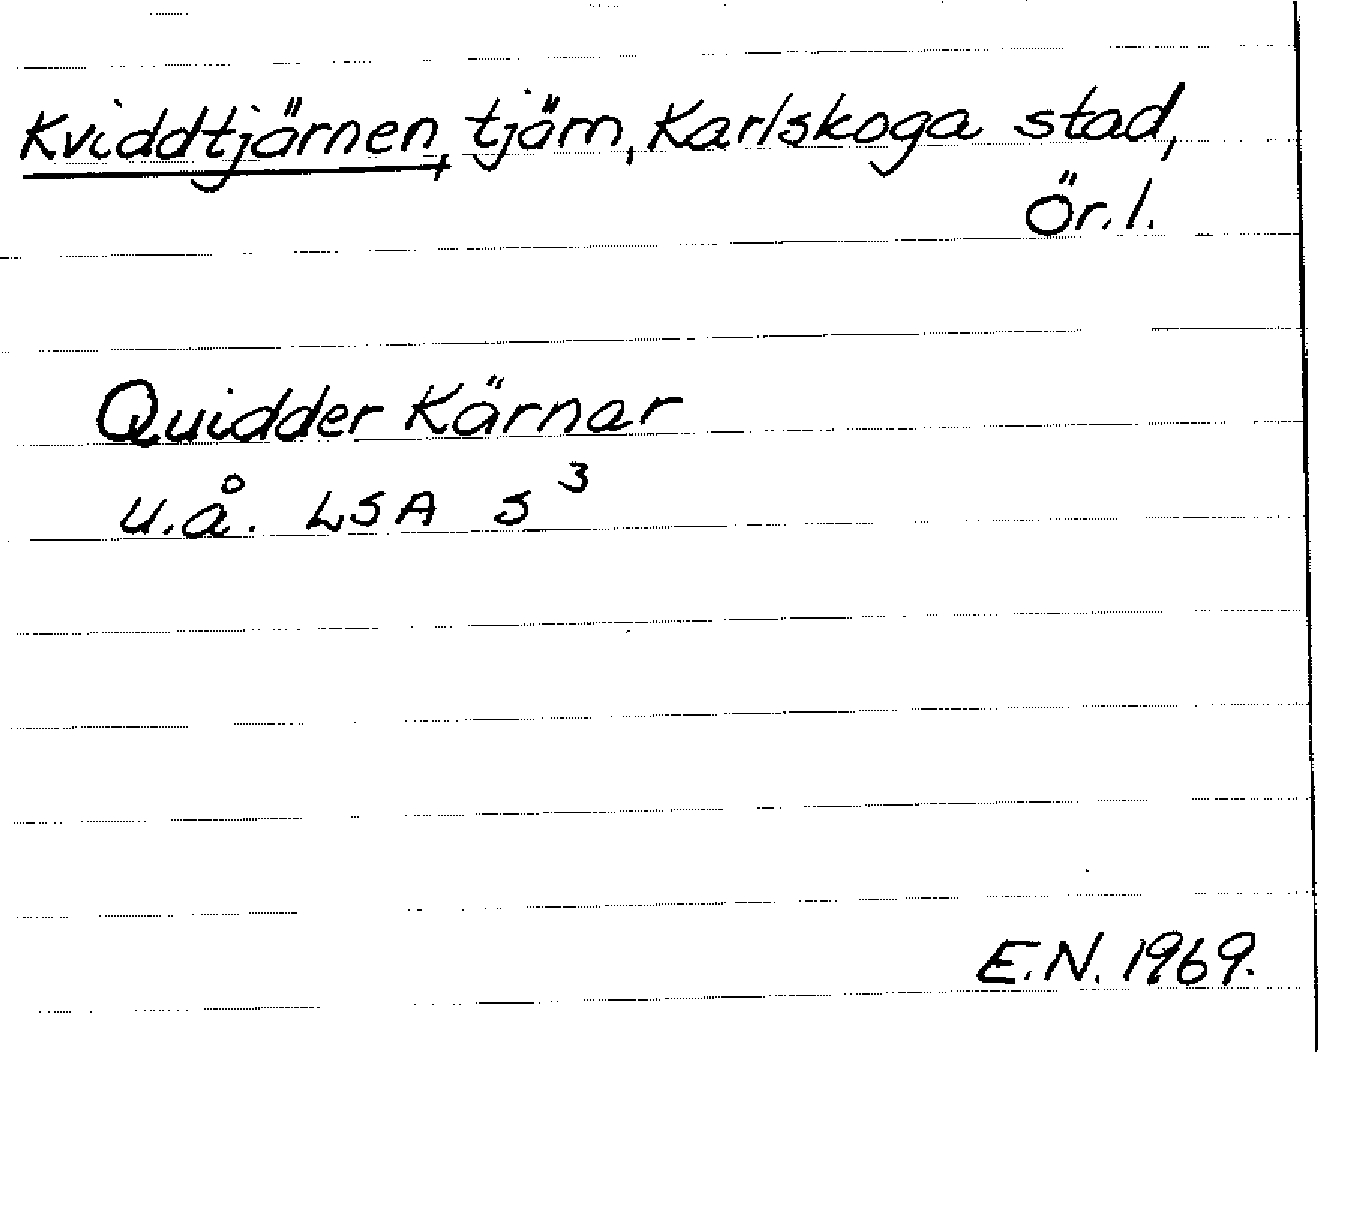 Kviddtjärnen, tjärn, Karlskoga stad,
Ör. l.
Quidder Kärnar
u.å. LSA S³
E.N. 1969.